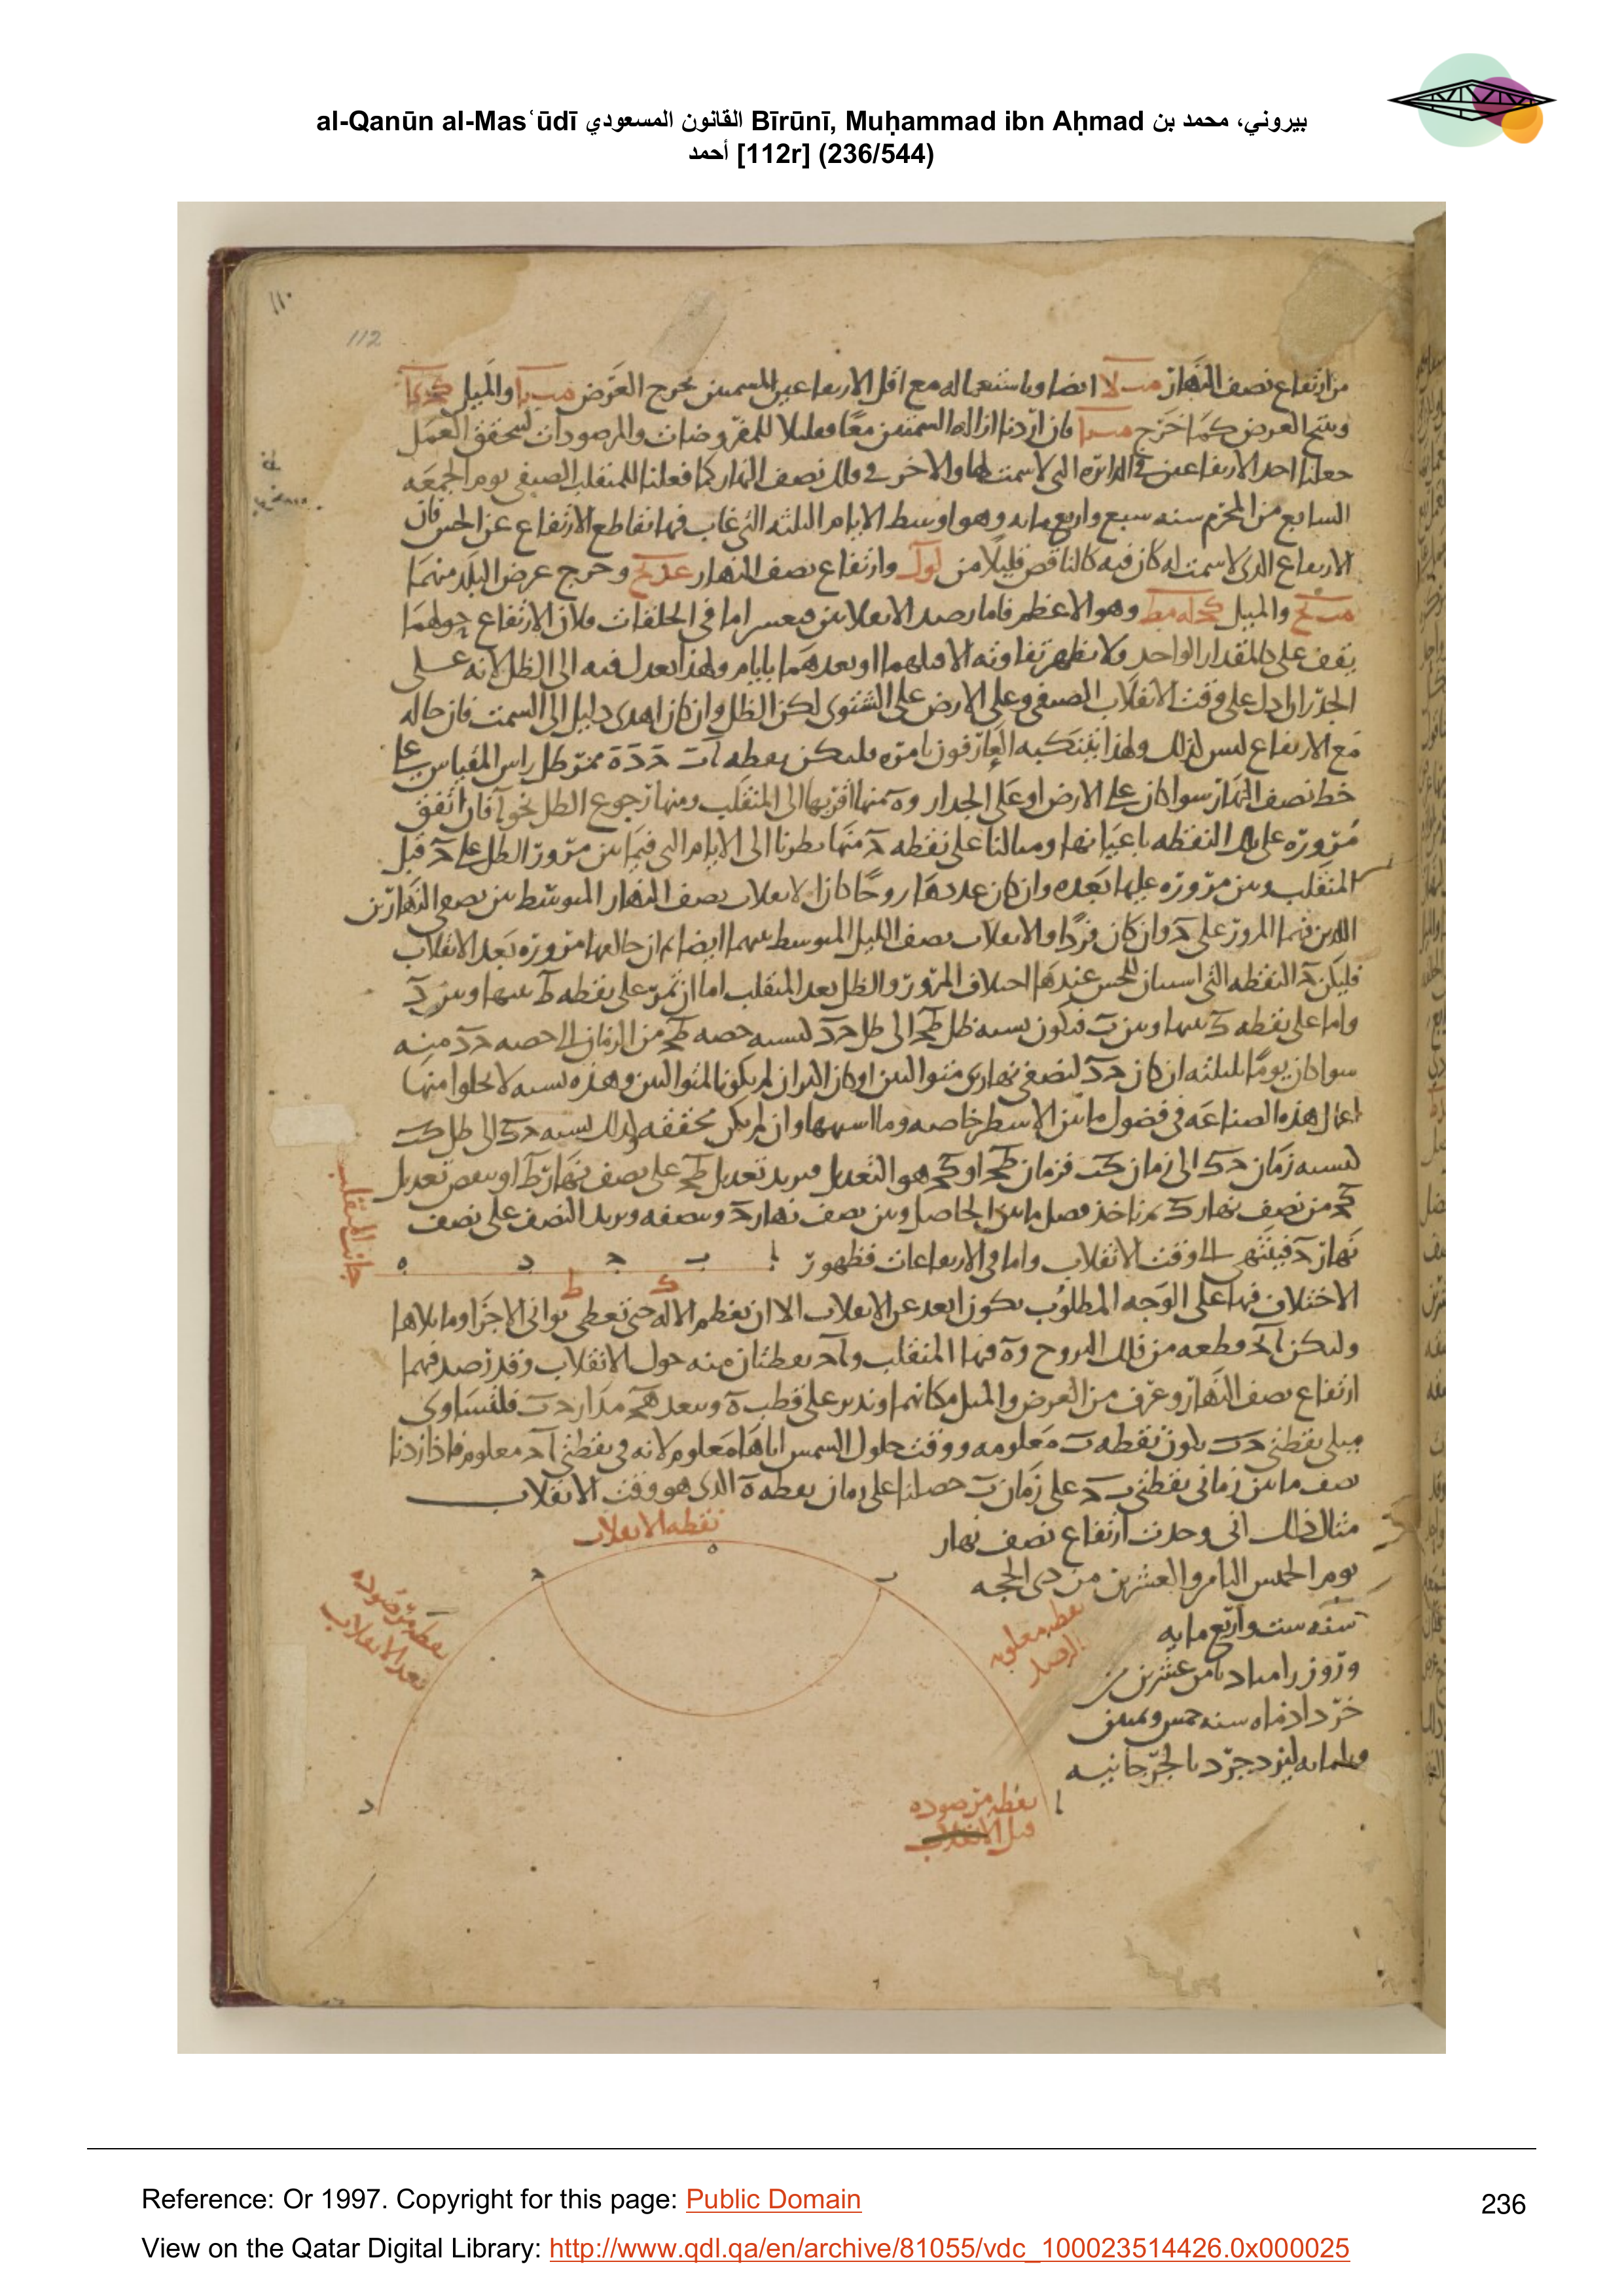 al-Qanūn al-Masʿūdī القانون المسعودي Bīrūnī, Muḥammad ibn Aḥmad بيروني، محمد بن
أحمد [112r] (236/544)
١١٠
112
من ارتفاع نصف النهار مب لا ايضا وباستعماله مع اقل الارتفاعين المسمتين يخرج العرض والميل
وينتج العرض كما خرج فان اردنا ازالة السمتين معا وتقليلا للمفروضات والمرصودات ليتحقق العمل
جعلنا احد الارتفاعين في الدائرة التي لا سمت لها والاخر في فلك نصف النهار كما فعلنا للمنقلب الصيفي يوم الجمعه
السابع من المحرم سنه سبع واربع مايه وهو اوسط الايام الثلثه التي غاب فيها تقاطع الارتفاع عن الحس فان
الارتفاع الذي لا سمت له كان فيه كالناقص قليلا من وارتفاع نصف النهار وخرج عرض البلد منهما
والميل وهو الاعظم فاما رصد الانقلابين فيعسر اما في الحلقات فلان الارتفاع حولهما
يقف على المقدار الواحد ولا يظهر تفاوته الا قبلهما او بعدهما بايام ولهذا يعدل فيه الى الظل لانه على
الجدران ادل على وقت الانقلاب الصيفي وعلى الارض على الشتوي لكن الظل وان كان اهدى دليل الى السمت فان حاله
مع الارتفاع ليس كذلك ولهذا يتنكبه العارفون بامره فليكن نقطه آ ب ج د ه ممر ظل راس المقياس على
خط نصف النهار سوا كان على الارض او على الجدار و ه منها اقربها الى المنقلب ومنها رجوع الظل نحو آ فان اتفق
مروره على تلك النقطه باعيانها ومثالنا على نقطه د منها نظرنا الى الايام التي فيما بين مرور الظل على د قبل
المنقلب وبين مروره عليها بعده وان كان عددها زوجا كان الانقلاب نصف النهار المتوسط بين نصفي النهارين
اللذين فيهما المرور على د وان كان فردا فالانقلاب نصف الليل المتوسط بينهما ايضا
فليكن د النقطه التي استبان للحس عندها اختلاف المرور والظل بعد المنقلب اما ان تمر على نقطه ط بينها وبين د
واما على نقطه ك بينها وبين ب فتكون نسبه ظل ط ج الى ظل ج د كنسبه حصه ط ج من الزمان الى حصه ج د منه
سوا كان يوما بليلته ان كان ج د لنصفي نهارين متواليين او كان اكثر ان لم يكونا متواليين وهذه نسبه لا يخلوا منها
اعمال هذه الصناعه في فضول ما بين الاسطر خاصه وما اشبهها وان لم يكن محققه كذلك نسبه ج ك الى ظل ج ب
كنسبه زمان ج ك الى زمان ج ب فزمان ط ج او ك ج هو التعديل فنزيد تعديل ط ج على نصف نهار ط او ننقص تعديل
ك ج من نصف نهار ك ثم ناخذ فصل ما بين الحاصل وبين نصف نهار د وننصفه ونزيد النصف على نصف
نهار د فينتهي الى وقت الانقلاب واما في الارتفاعات فظهور
ا ب ج د ه
ك ط
جانب المنقلب
الاختلاف فيها على الوجه المطلوب يكون ابعد عن الانقلاب الا ان تعظم الاله حتى تعطي ثواني الاجزا وما يلاها
وليكن آ د قطعه من فلك البروج و ه فيها المنقلب و آ د نقطتان منه حول الانقلاب وقد رصد فيهما
ارتفاع نصف النهار وعرف من العرض والميل مكانهما وندير على قطب ه وببعد ه ج مدار ج ب فلتساوي
ميلي نقطتي ج ب تكون نقطه ب معلومه ووقت حلول الشمس اياها معلوم لانه في نقطتي آ د معلوم فاذا زدنا
نصف ما بين زماني نقطتي ب ج على زمان ب حصلنا على زمان نقطه ه الذي هو وقت الانقلاب
مثال ذلك اني وجدت ارتفاع نصف نهار
يوم الخميس الثامن والعشرين من ذي الحجه
سنه ست واربع مايه
وروز رامباد ثامن عشرين من
خرداد ماه سنه خمس وثمنين
وثلثمايه ليزدجرد بالجرجانيه
نقطه الانقلاب
ه
ج
ب
نقطه مرصوده
بعد الانقلاب
نقطه معلومه
الرصد
د
ا
نقطه مرصوده
قبل الانقلاب
Reference: Or 1997. Copyright for this page: Public Domain
236
View on the Qatar Digital Library: http://www.qdl.qa/en/archive/81055/vdc_100023514426.0x000025